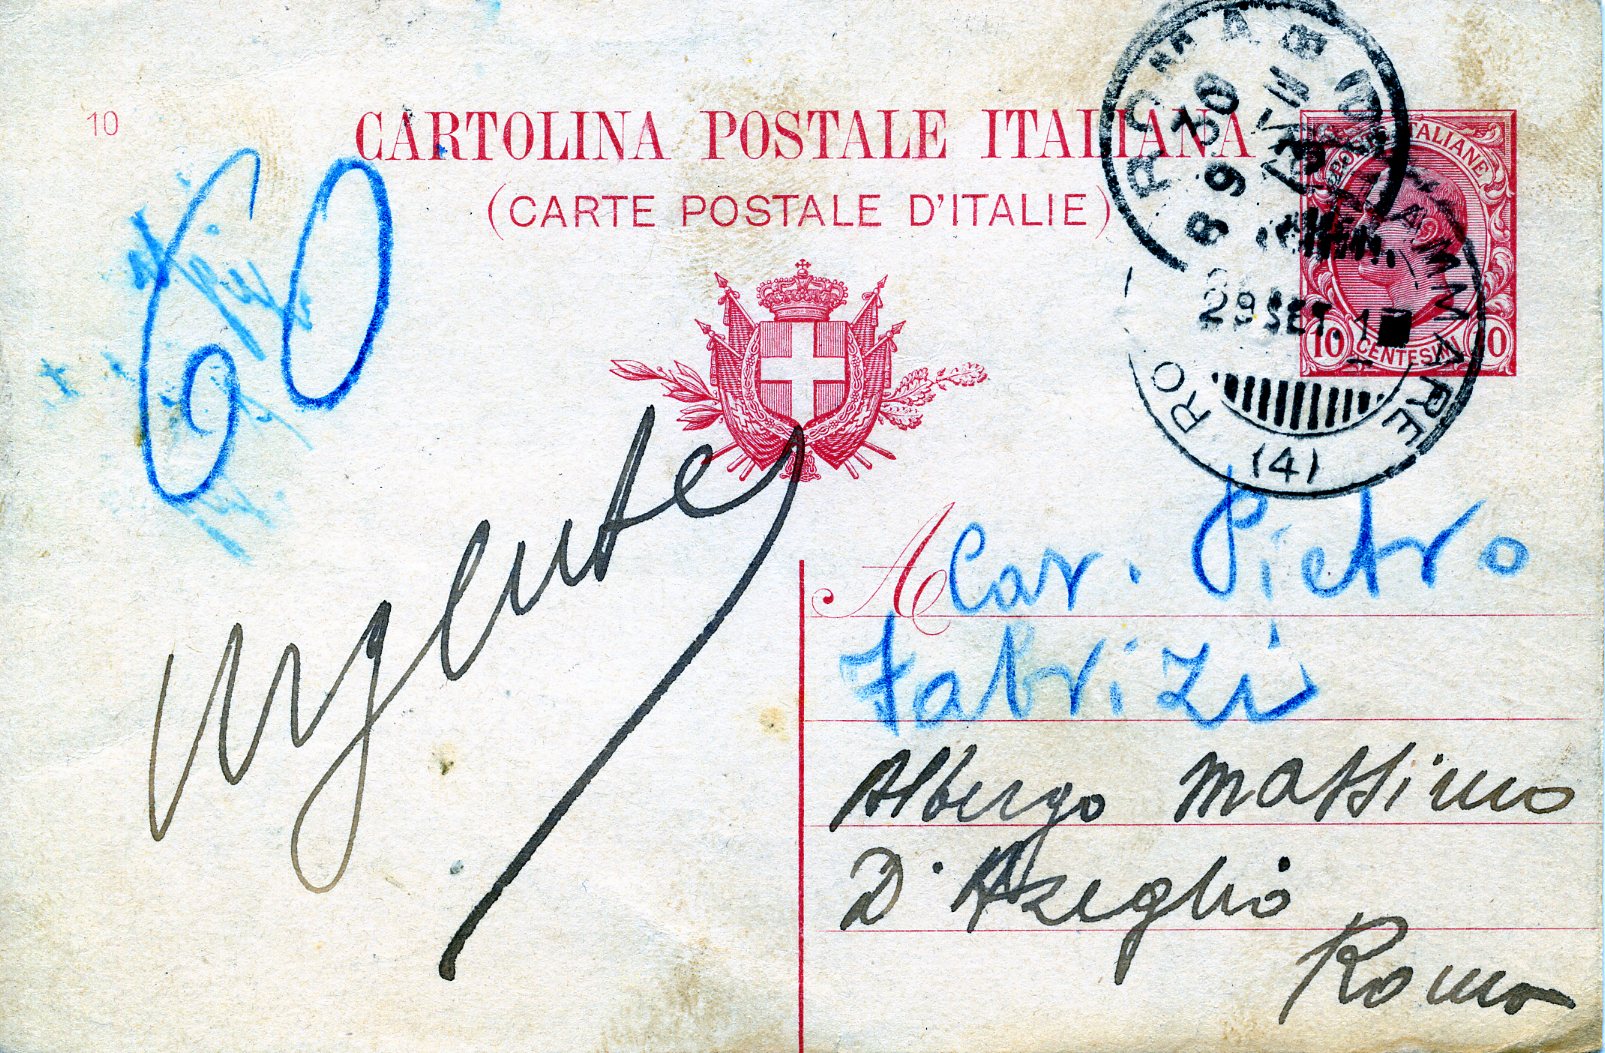 10
CARTOLINA POSTALE ITALIANA
(CARTE POSTALE D'ITALIE)
60
ROMA
30 9
29 SET. 1
(4)
ITALIANE
10 CENTESIMI 10
urgente
A Cav. Pietro
Fabrizi
Albergo Massimo
D'Azeglio
Roma